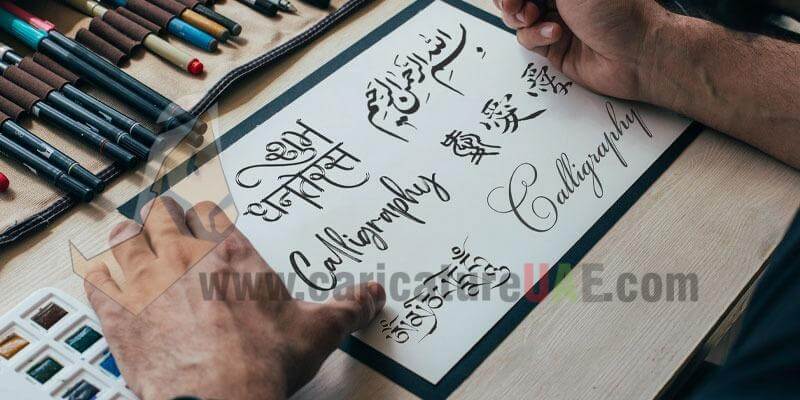 بسم الله الرحمن الرحيم
शुभ
धनतेरस
愛
Calligraphy
Calligraphy
www.caricatureUAE.com